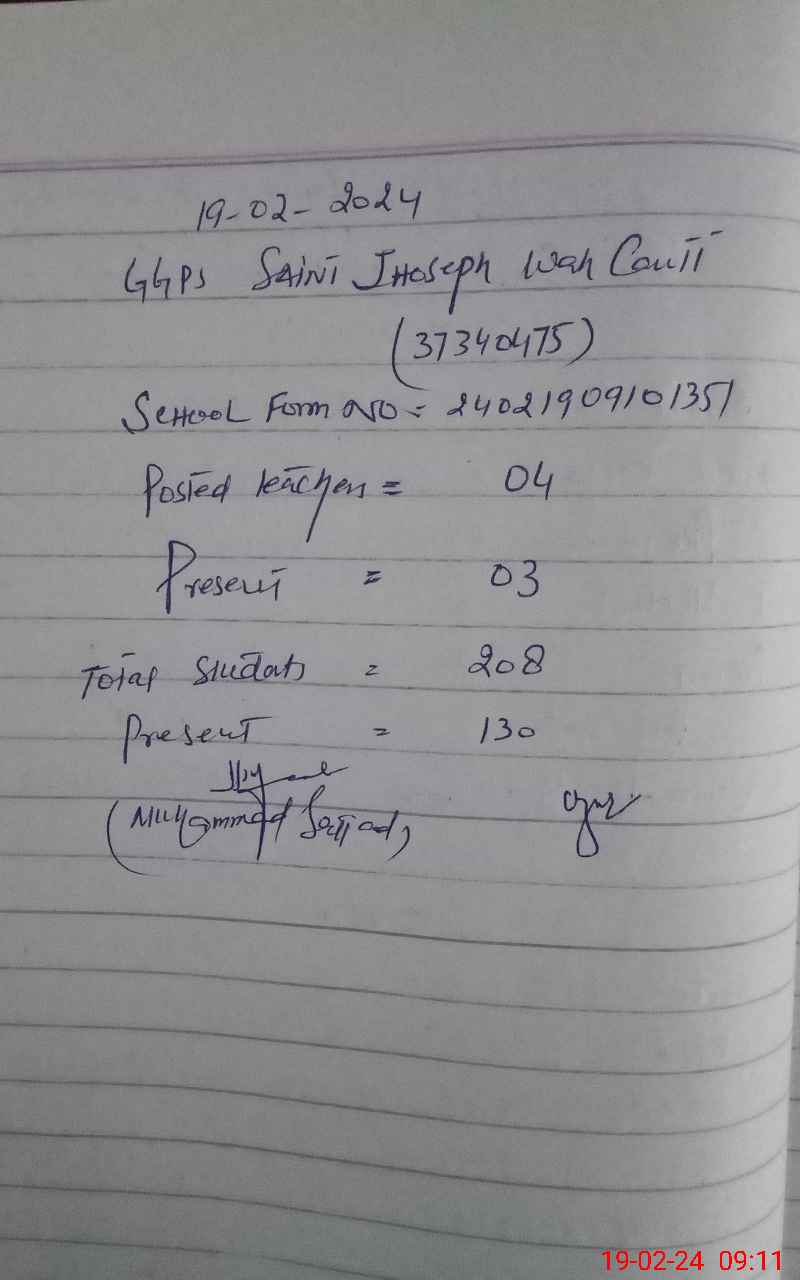 19-02-2024
GGPS SAINT JHOSEPH Wah Cantt
(37340475)
SCHOOL Form No = 24021909101351
Posted teachers = 04
Present = 03
Total Students = 208
Present = 130
(Muhammad Sajjad)
19-02-24 09:11